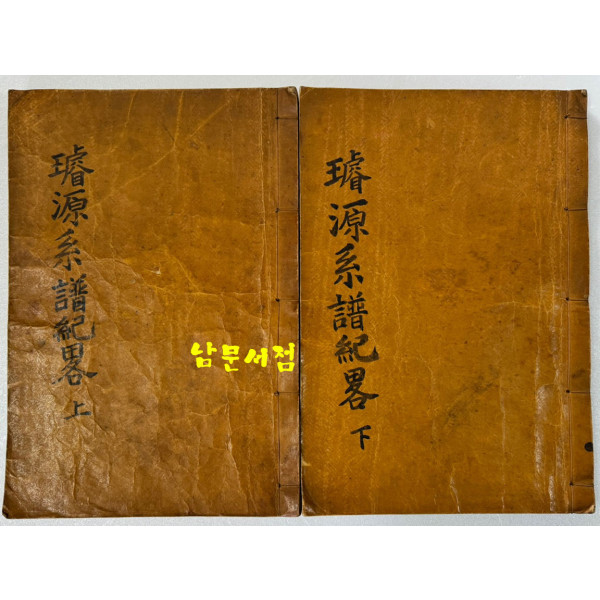 璿源系譜紀畧
上
璿源系譜紀畧
下
남문서점